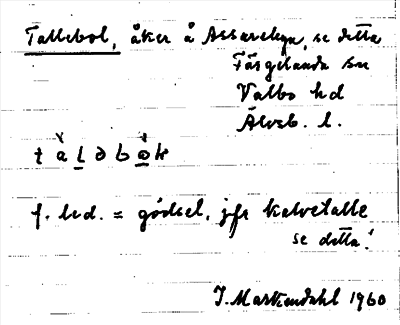 Tallebol, åker å Assarebyn, se detta
Färgelanda sn
Valbo hd
Älvsb. l.
f. led. = gödsel, jfr kalvetalle
se detta!
J. Markendahl 1960